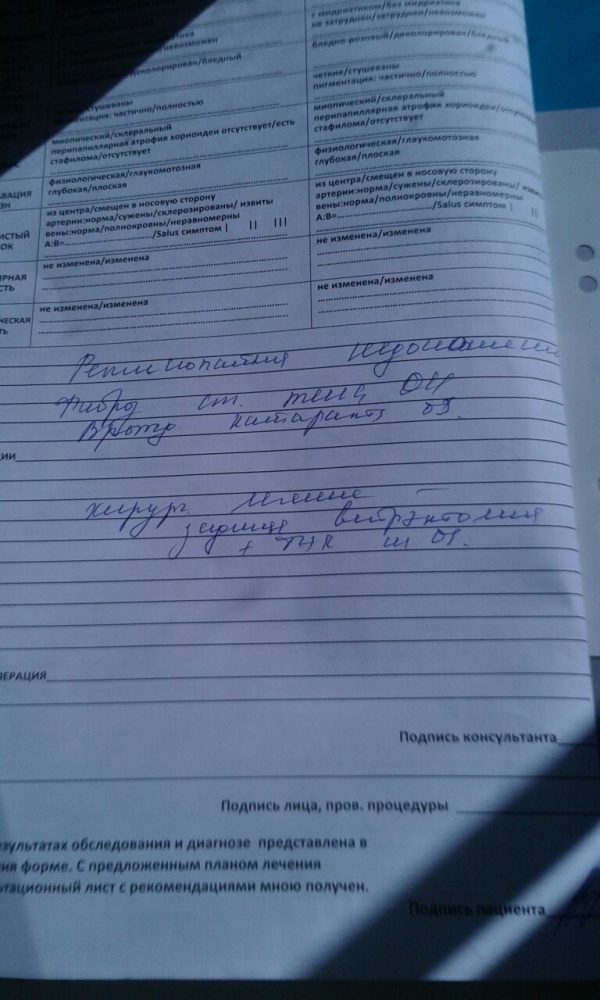 с мидриатиком/без мидриатика
не затруднен/затруднен/невозможен
бледно-розовый/деколорирован/бледный
деколорирован/бледный
четкие/стушеваны
пигментация: частично/полностью
стушеваны
частично/полностью
миопический/склеральный
перипапиллярная атрофия хориоидеи отсутствует/есть
стафилома/отсутствует
миопический/склеральный
перипапиллярная атрофия хориоидеи
стафилома/отсутствует
физиологическая/глаукомотозная
глубокая/плоская
физиологическая/глаукомотозная
глубокая/плоская
из центра/смещен в носовую сторону
артерии:норма/сужены/склерозированы/ извиты
вены:норма/полнокровны/неравномерны
A:B=............/Salus симптом | || |||
из центра/смещен в носовую сторону
артерии:норма/сужены/склерозированы/
вены:норма/полнокровны/неравномерны
A:B=............/Salus симптом | ||
не изменена/изменена
не изменена/изменена
не изменена/изменена
не изменена/изменена
Ретинопатия недоношен
ст. OU
катаракта OS.
хирург. лечение –
задняя витрэктомия
+ OS.
Подпись консультанта
Подпись лица, пров. процедуры
обследования и диагнозе представлена в
форме. С предложенным планом лечения
лист с рекомендациями мною получен.
Подпись пациента